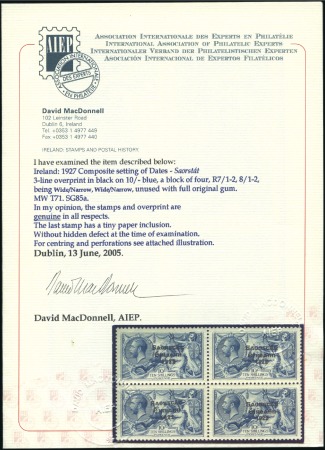 AIEP
ASSOCIATION INTERNATIONALE
DES EXPERTS
EN PHILATÉLIE
ASSOCIATION INTERNATIONALE DES EXPERTS EN PHILATÉLIE
INTERNATIONAL ASSOCIATION OF PHILATELIC EXPERTS
INTERNATIONALER VERBAND DER PHILATELISTISCHEN EXPERTEN
ASOCIACIÓN INTERNACIONAL DE EXPERTOS FILATÉLICOS
David MacDonnell
102 Leinster Road
Dublin 6, Ireland
Tel. +0353 1 4977 449
Fax +0353 1 4977 440
IRELAND: STAMPS AND POSTAL HISTORY
I have examined the item described below:
Ireland: 1927 Composite setting of Dates - Saorstát
3-line overprint in black on 10/- blue, a block of four, R7/1-2, 8/1-2,
being Wide/Narrow, Wide/Narrow, unused with full original gum.
MW T71. SG85a.
In my opinion, the stamps and overprint are
genuine in all respects.
The last stamp has a tiny paper inclusion.
Without hidden defect at the time of examination.
For centring and perforations see attached illustration.
Dublin, 13 June, 2005.
David MacDonnell
David MacDonnell, AIEP.